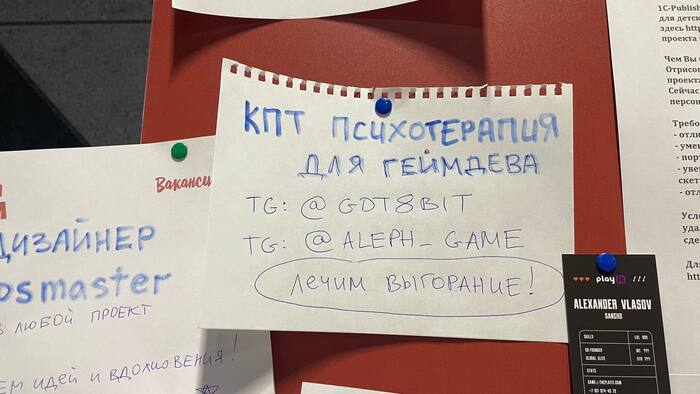 КПТ ПСИХОТЕРАПИЯ
ДЛЯ ГЕЙМДЕВА
TG: @GDT8BIT
TG: @ALEPH_GAME
ЛЕЧИМ ВЫГОРАНИЕ!
Ваканси
ДИЗАЙНЕР
osmaster
ЛЮБОЙ ПРОЕКТ
ЕМ ИДЕЙ И ВДОХНОВЕНИЯ!
1C-Publish
для детски
здесь
проекта
Чем Вы
Отрисов
проекта
Сейчас
персон
Требо
- отли
- умен
- пор
- уве
скет
- отл
Усло
уда
сде
Для
play
ALEXANDER VLASOV
SANCHO
SKILLS
CO-FOUNDER
GLOBAL ELITE
STATS